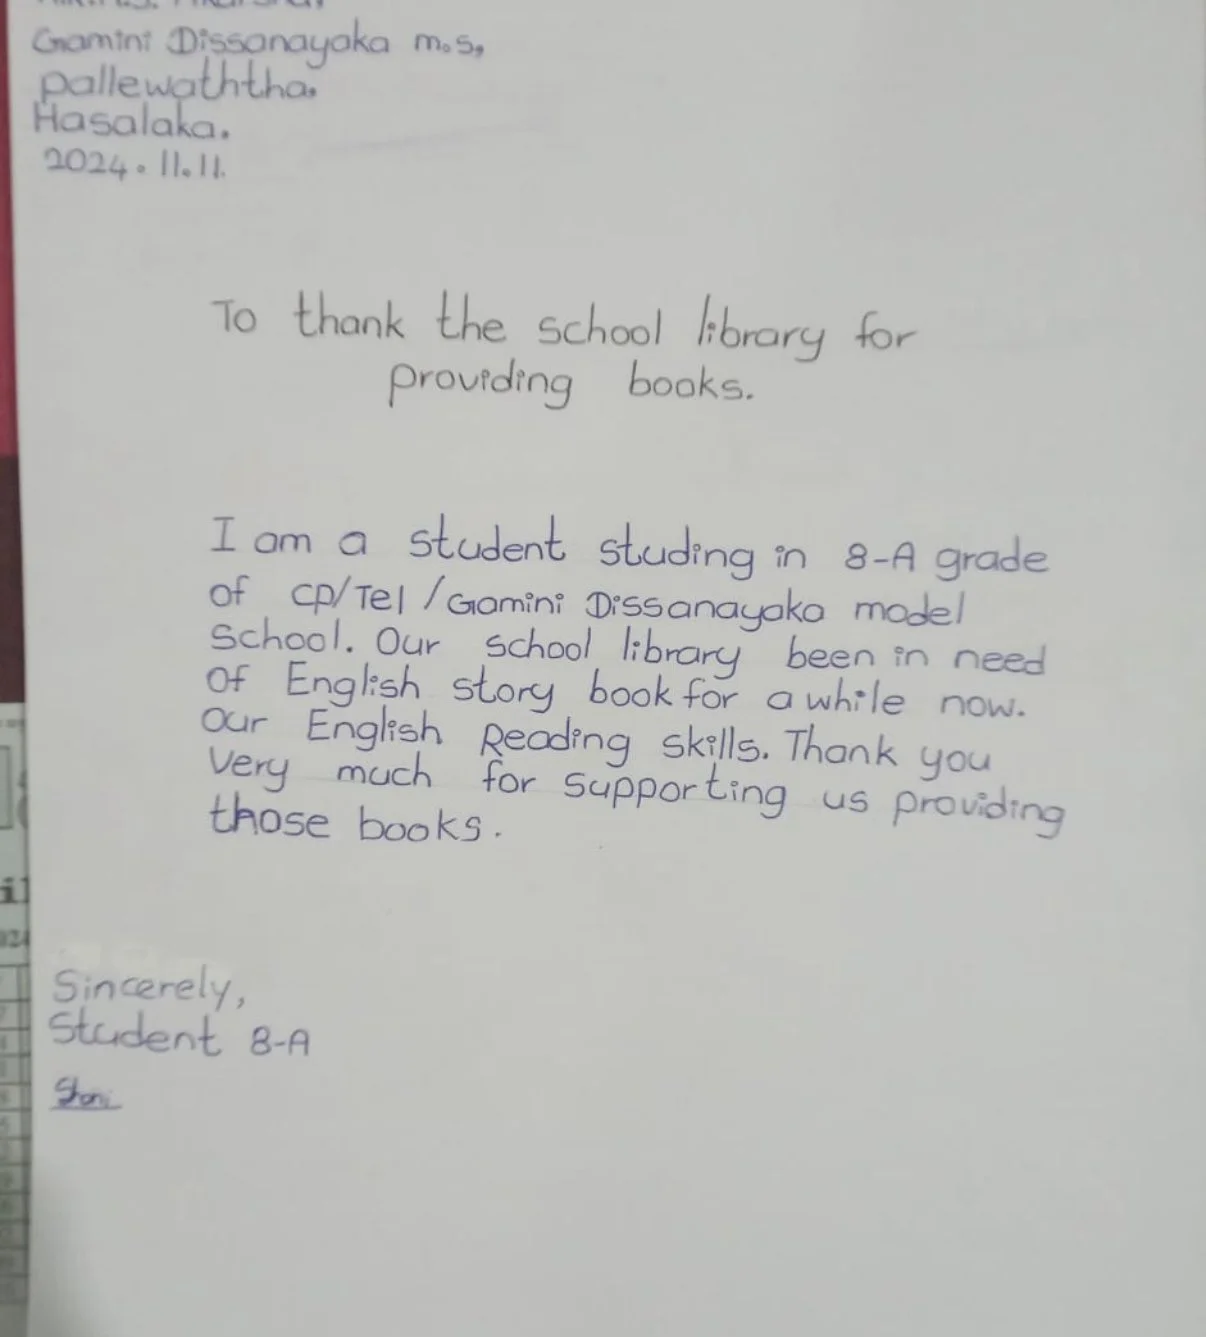 Gamini Dissanayaka m.s,
pallewaththa.
Hasalaka.
2024.11.11.
To thank the school library for
providing books.
I am a student studing in 8-A grade
of CP/Tel/Gamini Dissanayaka model
School. Our school library been in need
of English story book for a while now.
Our English Reading skills. Thank you
Very much for supporting us providing
those books.
Sincerely,
Student 8-A